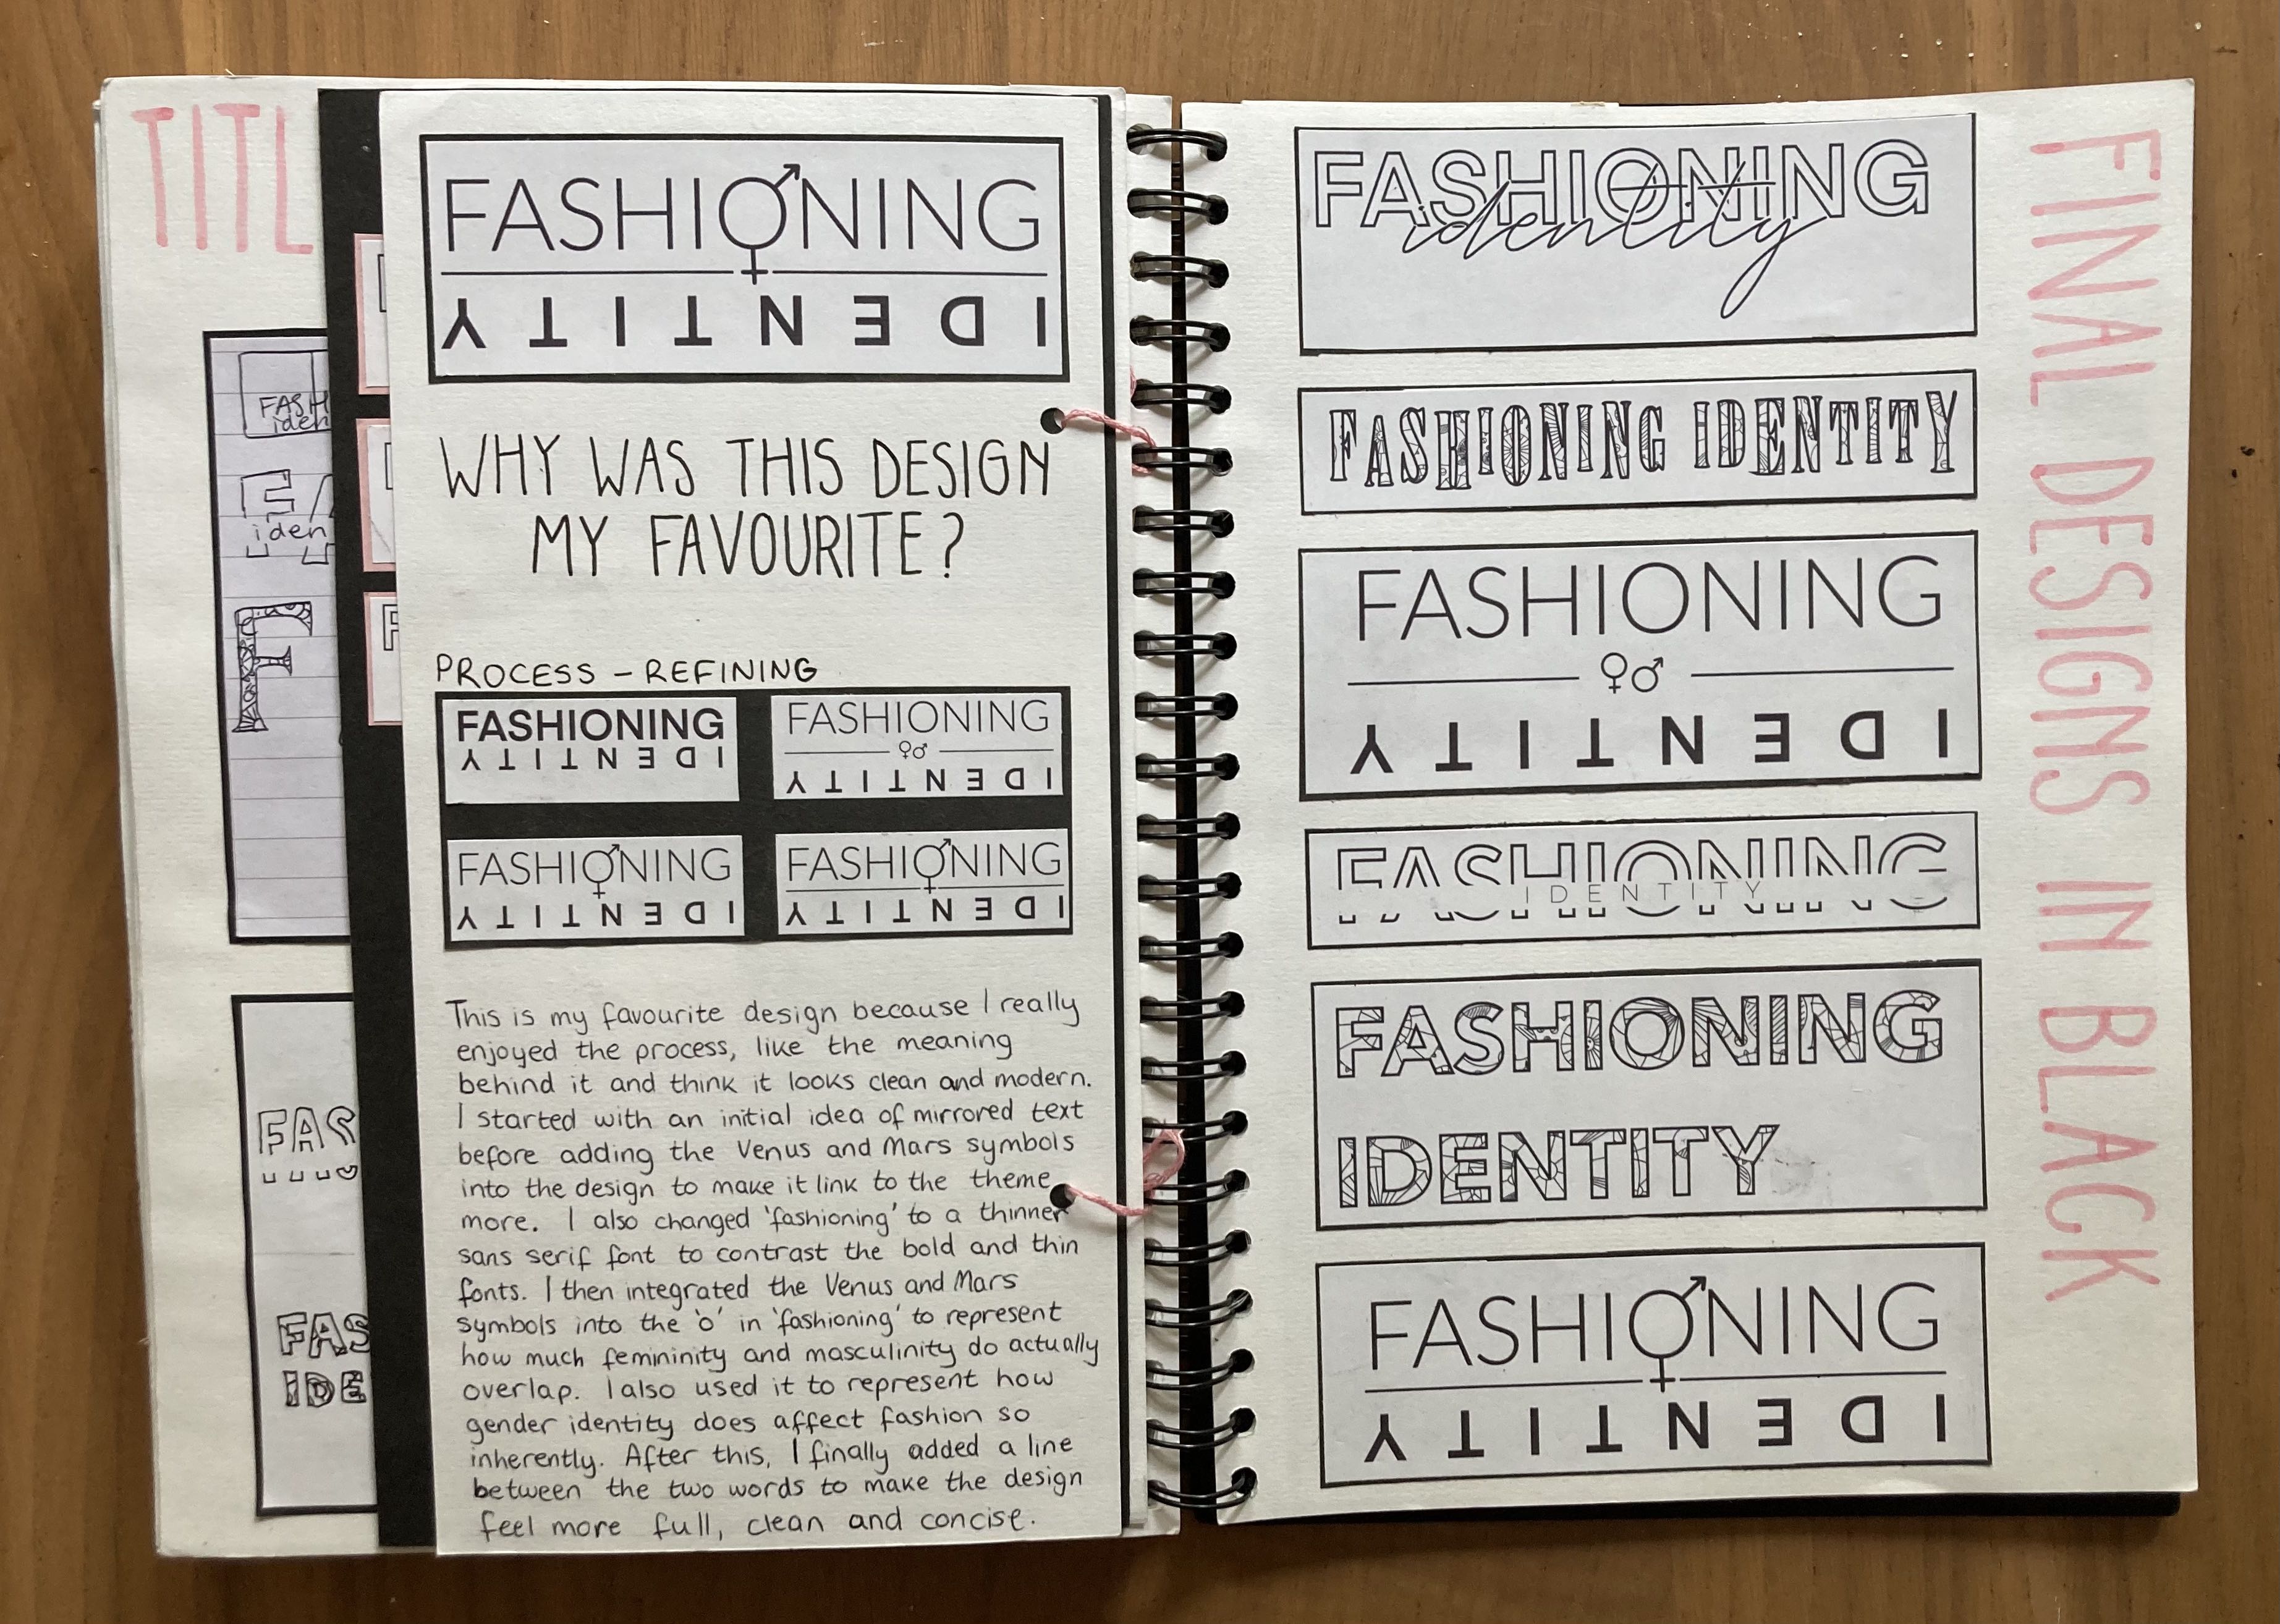 TITL
FASH
iden
FA
iden
F
FAS
FAS
IDE
F
FASHIONING
IDENTITY
WHY WAS THIS DESIGN
MY FAVOURITE?
PROCESS - REFINING
FASHIONING
IDENTITY
FASHIONING
♀♂
IDENTITY
FASHIONING
IDENTITY
FASHIONING
IDENTITY
This is my favourite design because I really
enjoyed the process, like the meaning
behind it and think it looks clean and modern.
I started with an initial idea of mirrored text
before adding the Venus and Mars symbols
into the design to make it link to the theme
more. I also changed 'fashioning' to a thinner
sans serif font to contrast the bold and thin
fonts. I then integrated the Venus and Mars
symbols into the 'o' in 'fashioning' to represent
how much femininity and masculinity do actually
overlap. I also used it to represent how
gender identity does affect fashion so
inherently. After this, I finally added a line
between the two words to make the design
feel more full, clean and concise.
FASHIONING
identity
FASHIONING IDENTITY
FASHIONING
♀♂
IDENTITY
FASHIONING
IDENTITY
FASHIONING
IDENTITY
FASHIONING
IDENTITY
FINAL DESIGNS IN BLACK